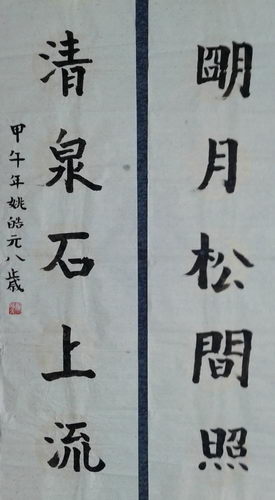 明月松間照
清泉石上流
甲午年姚皓元八歲